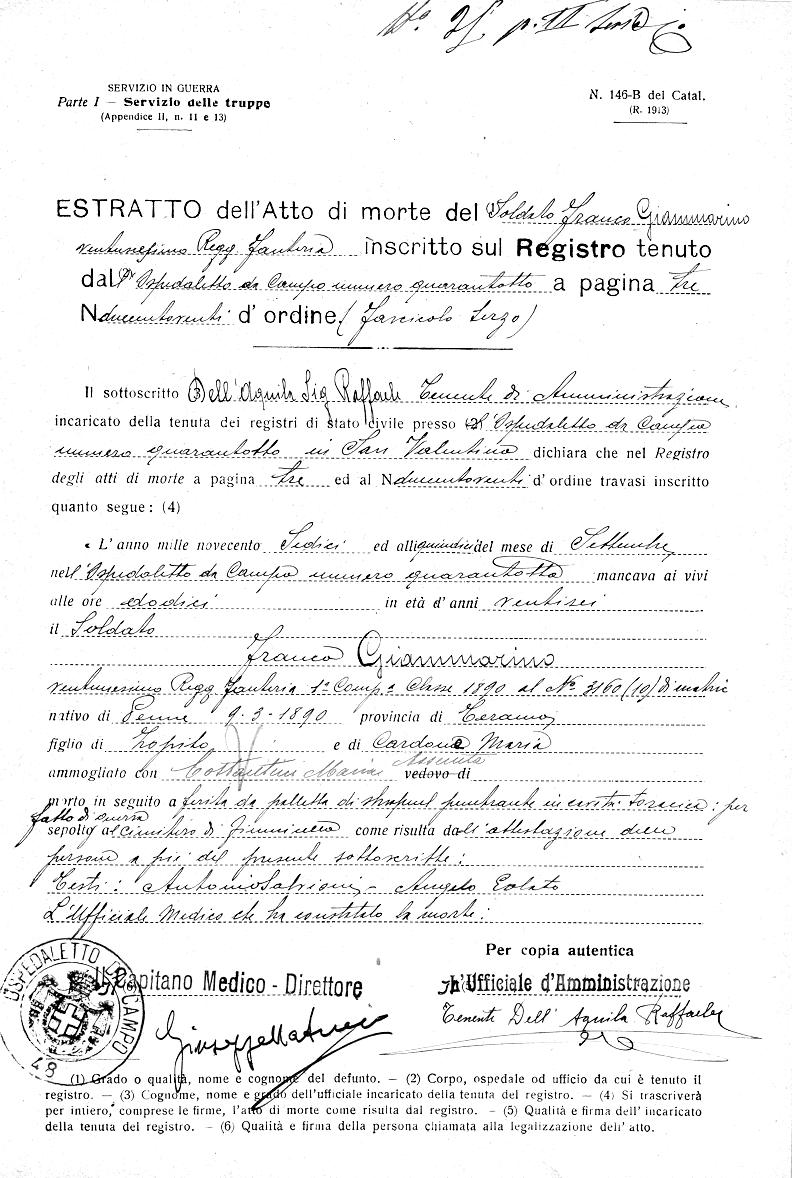 No. 25 p. II Serie
SERVIZIO IN GUERRA
Parte I — Servizio delle truppe
(Appendice II, n. 11 e 13)
N. 146-B del Catal.
(R. 1913)
ESTRATTO dell'Atto di morte del Soldato Franco Giammarino
ventunesimo Regg Fanteria inscritto sul Registro tenuto
dal Ospedaletto da Campo numero quarantotto a pagina tre
N ducentoventi d'ordine (Fascicolo Terzo)
Il sottoscritto Dell'Aquila Sig Raffaele Tenente di Amministrazione
incaricato della tenuta dei registri di stato civile presso (2) l'Ospedaletto da Campo
numero quarantotto in San Valentino dichiara che nel Registro
degli atti di morte a pagina tre ed al N ducentoventi d'ordine travasi inscritto
quanto segue: (4)
« L'anno mille novecento Sedici ed alli quindici del mese di Settembre
nell'Ospedaletto da Campo numero quarantotto mancava ai vivi
alle ore dodici in età d'anni ventisei
il Soldato
Franco Giammarino
ventunesimo Regg Fanteria 1ª Compª Classe 1890 al No. 3160 (10) di matric
nativo di Penne 9-3-1890 provincia di Teramo
figlio di Zopito e di Cardone Maria
ammogliato con Costantini Maria Assunta vedovo di
morto in seguito a ferita da palletta di shrapnel penetrante in cavità toracica: per
fatto di guerra
sepolto al cimitero di come risulta dall'attestazione delle
persone a piè del presente sottoscritte:
Testi: Antonio Salvioni - Angelo
L'Ufficiale Medico che ha constatato la morte:
Per copia autentica
Il Capitano Medico - Direttore
L'Ufficiale d'Amministrazione
Giuseppe
Tenente Dell'Aquila Raffaele
OSPEDALETTO DA CAMPO
48
(1) Grado o qualità, nome e cognome del defunto. — (2) Corpo, ospedale od ufficio da cui è tenuto il
registro. — (3) Cognome, nome e grado dell'ufficiale incaricato della tenuta del registro. — (4) Si trascriverà
per intiero, comprese le firme, l'atto di morte come risulta dal registro. — (5) Qualità e firma dell'incaricato
della tenuta del registro. — (6) Qualità e firma della persona chiamata alla legalizzazione dell'atto.